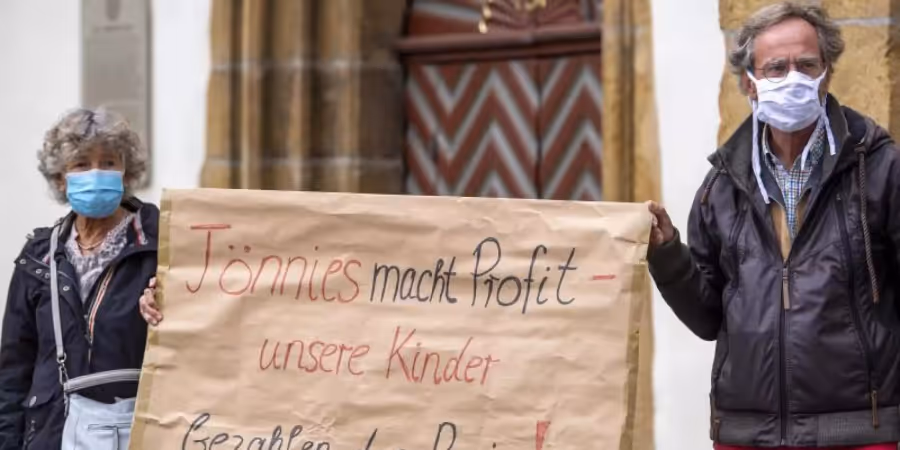 Tönnies macht Profit -
unsere Kinder
Bezahlen den Preis!